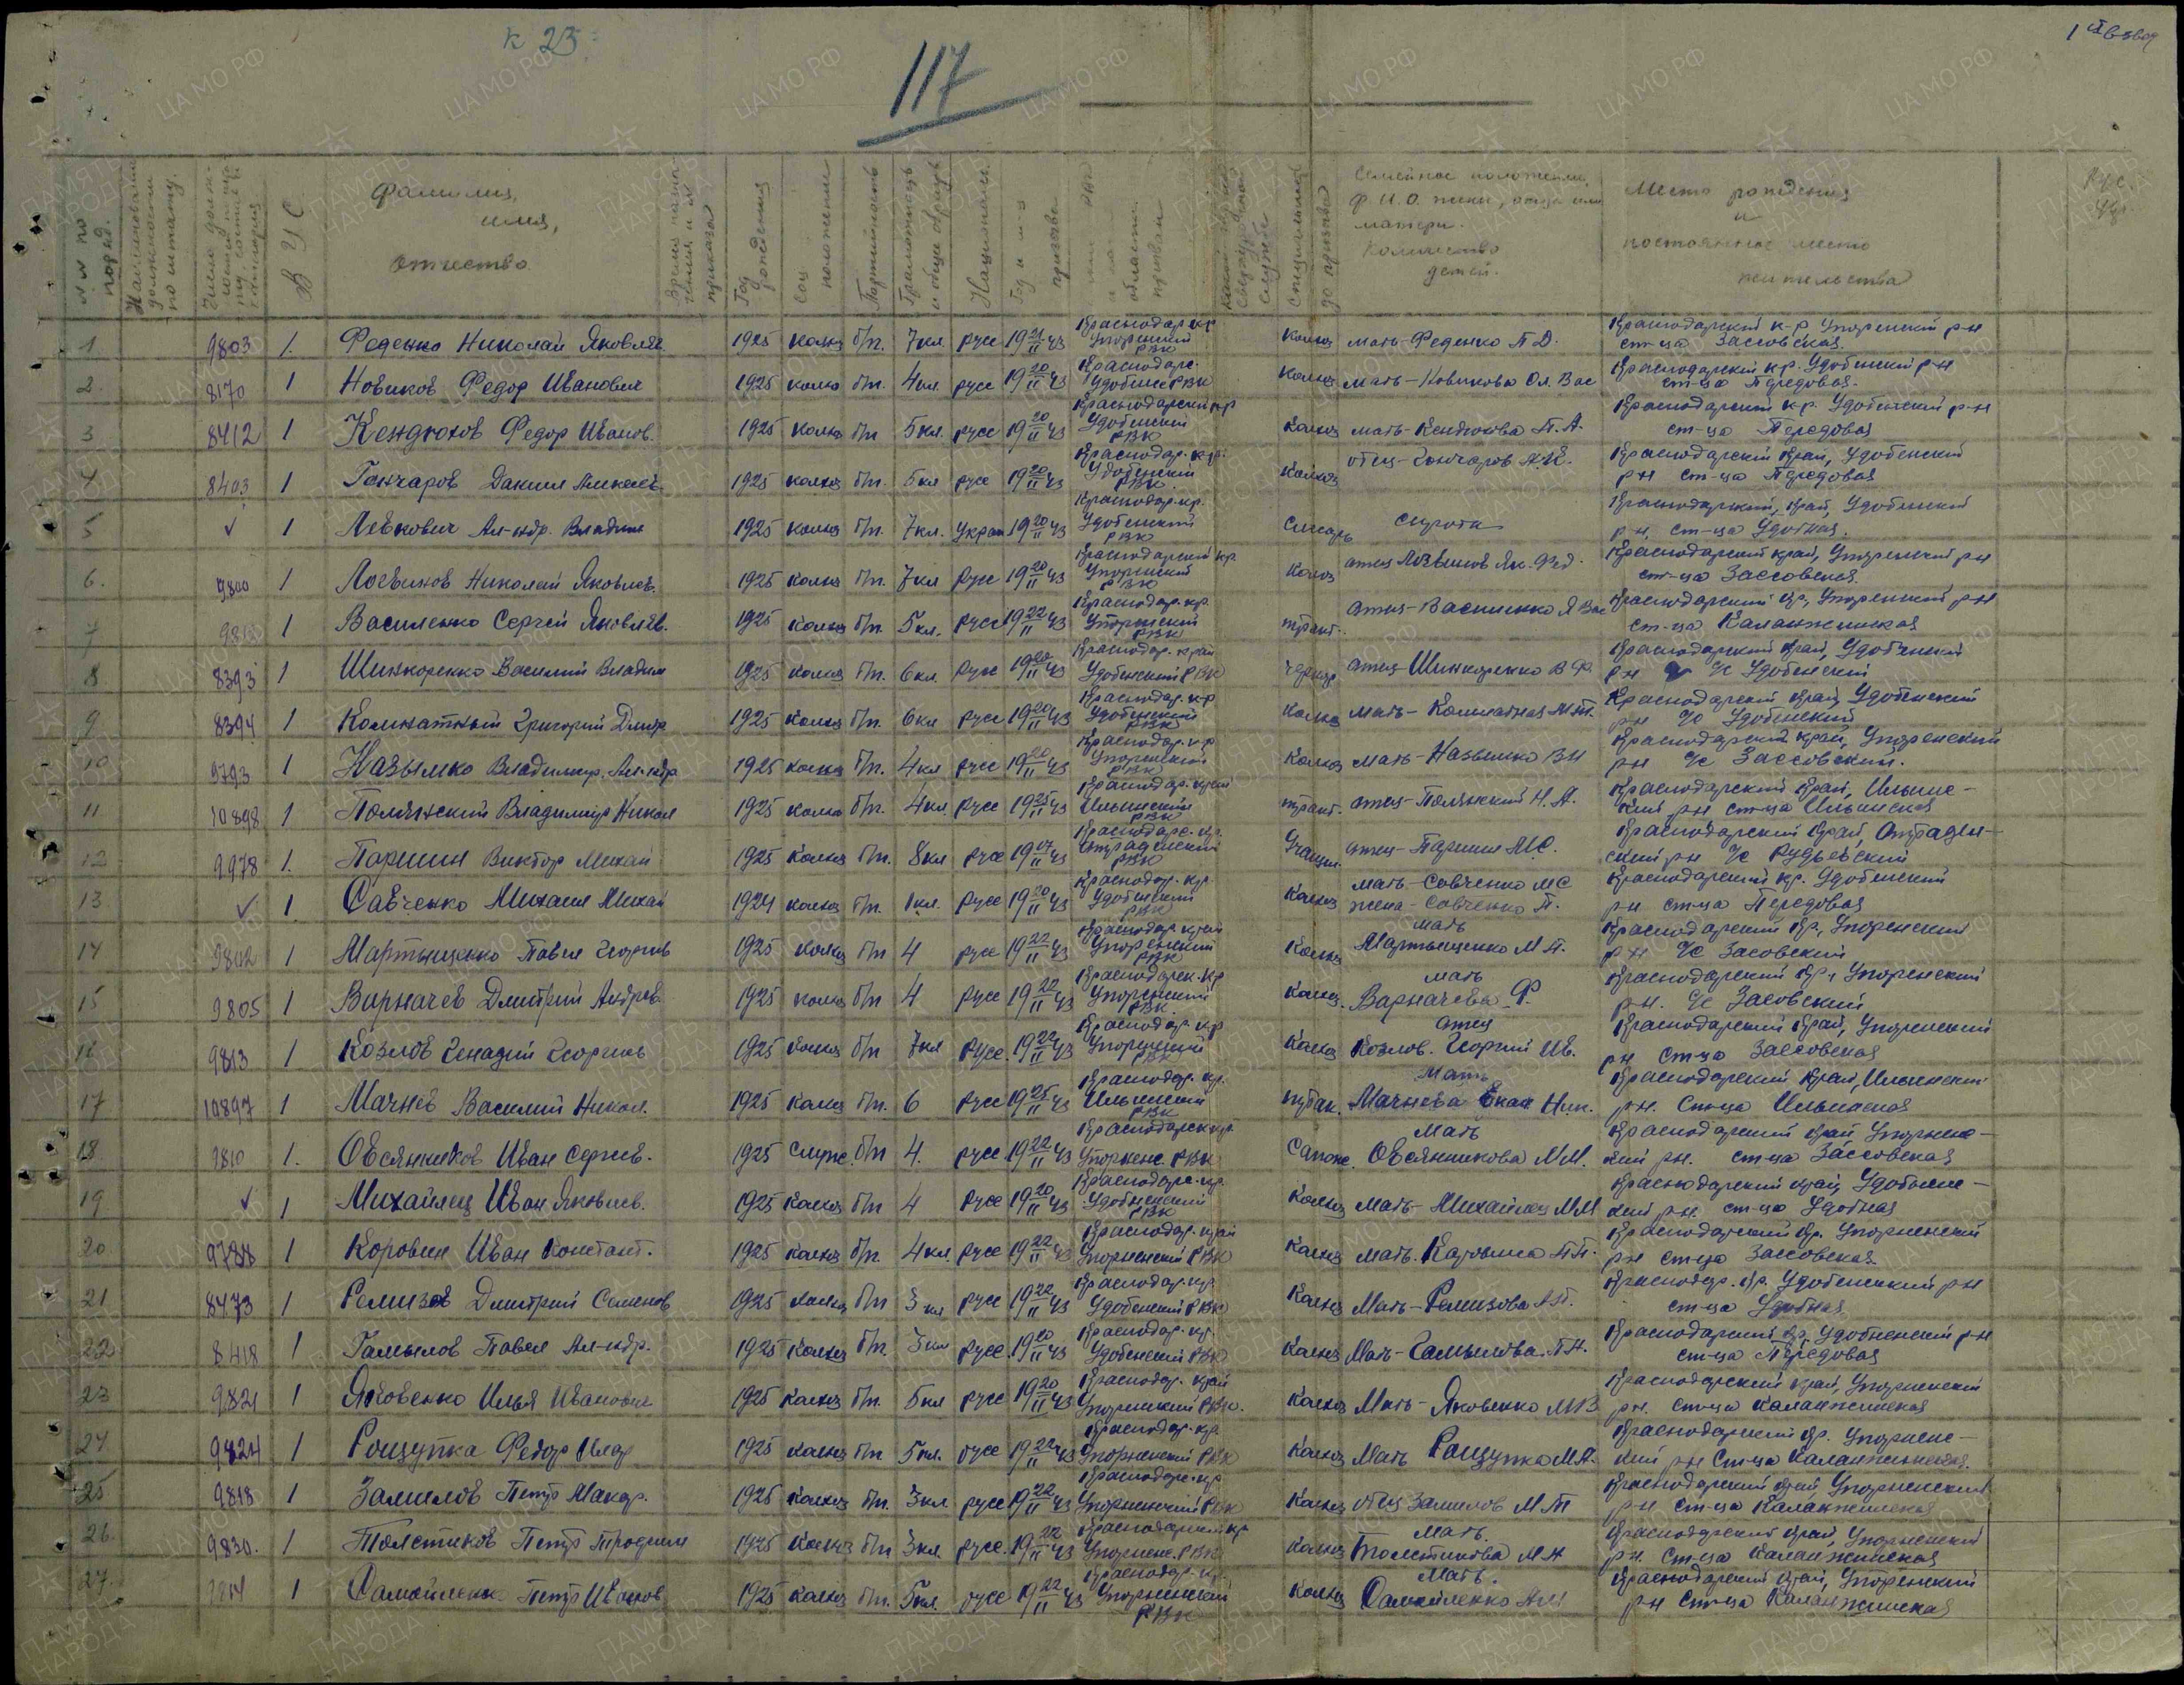 к 25
117
1й взвод
№№ по поряд.
Наименование должности по штату.
В У С
Фамилия,
имя,
отчество
Год рождения
Соц положение
Партийность
Грамотность и общее образ
Национальн.
Год и м-ц призыва
Специальность до призыва
Семейное положение,
Ф. И. О. жены, отца или
матери.
Количество
детей.
Место рождения
и
постоянное место
жительства
1. 9803 1. Феденко Николай Яковлев 1925 колхоз б/п. 7 кл. русс 19 21/II 43 Краснодар кр Упорненский РВК колхоз мать-Феденко П Д. Краснодарский к-р Упорненский р-н ст-ца Зассовская.
2. 8170 1 Новиков Федор Иванович 1925 колхо б/п. 4 кл. русс 19 20/II 43 Краснодарс. Удобненс РВК колхоз мать-Новикова Ол. Вас Краснодарский кр. Удобненский р-н ст-ца Передовая.
3 8412 1 Кендюхов Федор Иванов. 1925 колхоз б/п 5 кл. русс 19 20/II 43 Краснодарский кр Удобенский РВК колхоз мать-Кендюхова П. А. Краснодарский кр. Удобненский р-н ст-ца Передовая
4 8403 1 Гончаров Даниил Алексеев. 1925 колхоз б/п. 5 кл русс 19 20/II 43 Краснодар. кр. Удобенский РВК. колхоз отец-Гончаров А. К. Краснодарский край, Удобенский р-н ст-ца Передовая
5 ✓ 1 Левкович Ал-ндр. Владим 1925 колхоз б/п. 7 кл. украи 19 20/II 43 Краснодар. кр. Удобенский РВК Слесарь сирота Краснодарский, край, Удобенский р-н, ст-ца Удобная.
6. 9800 1 Логвинов Николай Яковлев. 1925 колхоз б/п. 7 кл русс 19 20/II 43 Краснодарский кр. Упорненский РВК колхоз отец Логвинов Як. Фед. Краснодарский край, Упорненский р-н ст-ца Зассовская.
7 1 Василенко Сергей Яковлев. 1925 колхоз б/п. 5 кл. русс 19 22/II 43 Краснодар. кр. Упорненский РВК тракт. отец-Василенко Я Вас Краснодарский кр., Упорненский р-н ст-ца Каланжинская
8. 8393 1 Шинкоренко Василий Владим 1925 колхоз б/п. 6 кл. русс 19 20/II 43 Краснодар. край Удобненский РВК отец-Шинкоренко В Ф. Краснодарский край, Удобненский р-н с/с Удобненский
9 8394 1 Комнатный Григорий Дмитр 1925 колхоз б/п. 6 кл русс 19 20/II 43 Краснодар. кр Удобненский РВК колхоз мать-Комнатная М П. Краснодарский край Удобенский р-н с/с Удобненский
10 9793 1 Назымко Владимир. Ал-ндр 1925 колхоз б/п. 4 кл русс 19 20/II 43 Краснодар. кр Упорненский РВК колхоз мать-Назымко В Н Краснодарский край, Упорненский р-н с/с Зассовский.
11 10898 1 Полянский Владимир Никол 1925 колхоз б/п. 4 кл. русс 19 25/II 43 Краснодар. край Ильинский РВК тракт. отец-Полянский Н. А. Краснодарский край, Ильинс-кий р-н ст-ца Ильинская
12 9978 1. Паршин Виктор Михай 1925 колхоз б/п. 8 кл русс 19 43 Краснодарс. кр. Отрадненский РВК Учащи. отец-Паршин М С. Краснодарский край, Отраден-ский р-н с/с Рудьевский
13. ✓ 1 Савченко Михаил Михай 1924 колхоз б/п. 1 кл. русс 19 20/II 43 Краснодар. кр Удобненский РВК колхоз мать-Савченко М С жена-Савченко П. Краснодарский кр. Удобненский р-н ст-ца Передовая
14 9802 1 Мартыщенко Павел Георгиев 1925 колхоз б/п 4 русс 19 22/II 43 Краснодар край Упорненский РВК колхоз мать Мартыщенко М П. Краснодарский кр., Упорненский р-н с/с Засовский
15 9805 1 Варначев Дмитрий Андрев 1925 колхоз б/п 4 русс 19 22/II 43 Краснодарск. кр Упорненский РВК. колхоз. мать Варначева Ф. Краснодарский кр., Упорненский р-н. с/с Засовский
16 9813 1 Козлов Генадий Георгиев 1925 колхоз б/п 7 кл русс. 19 22/II 43 Краснодар. кр Упорненский РВК колхоз отец Козлов. Георгий Ив. Краснодарский край, Упорненский р-н ст-ца Зассовская
17 10897 1 Мачнев Василий Никол. 1925 колхоз б/п. 6 русс 19 25/II 43 Краснодар. кр. Ильинский РВК мать Мачнева Екат Ник. Краснодарский край, Ильинский р-н. ст-ца Ильинская
18. 9810 1. Овсянников Иван Сергеев. 1925 служ. б/п 4. русс. 19 22/II 43 Краснодарск кр Упорненс РВК Сапож. мать Овсянникова М М. Краснодарский край Упорненс-кий р-н. ст-ца Зассовская
19 ✓ 1 Михайлец Иван Яковлев. 1925 колхоз б/п 4 русс 19 20/II 43 Краснодарс. кр. Удобненский РВК колхоз мать-Михайлец М М Краснодарский край, Удобненс-кий р-н. ст-ца Удобная
20 9788 1 Коровин Иван Констант. 1925 колхоз б/п. 4 кл. русс 19 22/II 43 Краснодар. край Упорненский РВК колхоз мать. Коровина П П. Краснодарский кр. Упорненский р-н ст-ца Зассовская
21 8473 1 Ремизов Дмитрий Семенов 1925 колхоз б/п 3 кл русс 19 22/II 43 Краснодар. кр. Удобенский РВК колхоз мать-Ремизова А П. Краснодар. кр. Удобенский р-н ст-ца Удобная
22 8418 1 Гамылов Павел Ал-ндр. 1925 колхоз б/п. 3 кл русс. 19 20/II 43 Краснодар. кр. Удобенский РВК колхоз мать-Гамылова. П Н. Краснодарский кр. Удобненский р-н ст-ца Передовая
23 9821 1 Яковенко Илья Иванович 1925 колхоз б/п 5 кл русс 19 20/II 43 Краснодар. край Упорненский РВК. колхоз мать-Яковенко М З Краснодарский край, Упорненский р-н. ст-ца Каланжинская
24 9824 1 Рощупка Федор 1925 колхоз б/п 5 кл. русс 19 22/II 43 Краснодар. кр Упорненский РВК колхоз мать Рощупка М А. Краснодарский кр. Упорненс-кий р-н ст-ца Каланжинская.
25 9818 1 Замилов Петр Макар. 1925 колхоз б/п. 3 кл. русс 19 22/II 43 Краснодарс. кр Упорненский РВК колхоз отец Замилов М П Краснодарский край Упорненский р-н ст-ца Каланжинская
26. 9830. 1 Толстиков Петр Трофим 1925 колхоз б/п 3 кл. русс. 19 22/II 43 Краснодарский кр Упорненс. РВК колхоз мать. Толстикова М Н Краснодарский край, Упорненский р-н. ст-ца Каланжинская
27. 1 Самойленк Петр Иванов 1925 колхоз б/п. 5 кл. русс 19 22/II 43 Краснодар. кр. Упорненский РВК колхоз мать. Самойленко А Краснодарский край, Упорненский р-н ст-ца Каланжинская
ЦА МО РФ
ПАМЯТЬ НАРОДА